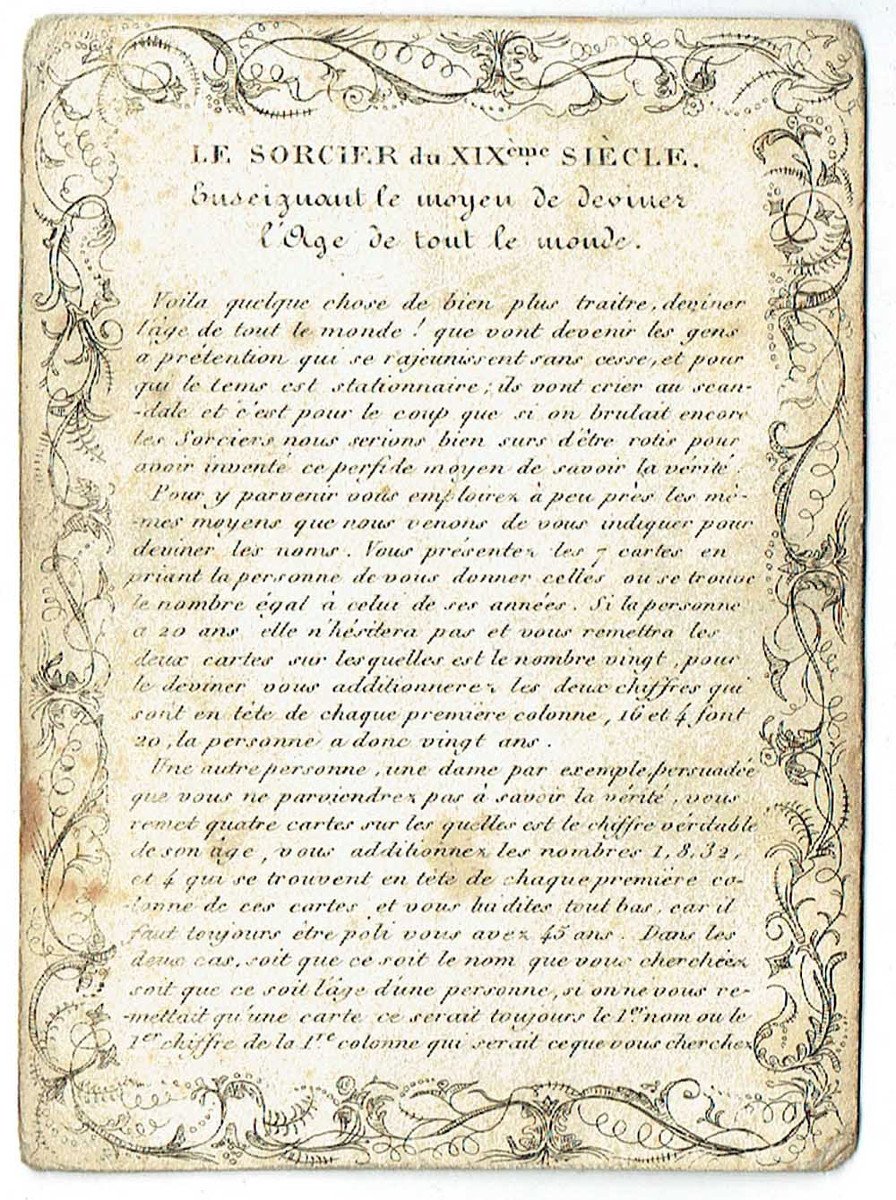 LE SORCIER du XIXème SIÈCLE.
Enseignant le moyen de deviner
l'Age de tout le monde.
Voila quelque chose de bien plus traitre, deviner
l'âge de tout le monde ! que vont devenir les gens
a prétention qui se rajeunissent sans cesse, et pour
qui le tems est stationnaire ; ils vont crier au scan-
-dale et c'est pour le coup que si on brulait encore
les Sorciers nous serions bien surs d'être rotis pour
avoir inventé ce perfide moyen de savoir la vérité.
Pour y parvenir vous emploirez à peu près les mê-
-mes moyens que nous venons de vous indiquer pour
deviner les noms. Vous présentez les 7 cartes en
priant la personne de vous donner celles ou se trouve
le nombre égal à celui de ses années. Si la personne
a 20 ans elle n'hésitera pas et vous remettra les
deux cartes sur lesquelles est le nombre vingt, pour
le deviner vous additionnerez les deux chiffres qui
sont en tête de chaque première colonne, 16 et 4 font
20, la personne a donc vingt ans.
Une autre personne, une dame par exemple, persuadée
que vous ne parviendrez pas à savoir la vérité, vous
remet quatre cartes sur les quelles est le chiffre véritable
de son âge, vous additionnez les nombres 1, 8, 32,
et 4 qui se trouvent en tête de chaque première co-
-lonne de ces cartes et vous lui dites tout bas, car il
faut toujours être poli vous avez 45 ans. Dans les
deux cas, soit que ce soit le nom que vous cherchiez
soit que ce soit l'âge d'une personne, si on ne vous re-
-mettait qu'une carte ce serait toujours le 1er nom ou le
1er chiffre de la 1re colonne qui serait ce que vous cherchez